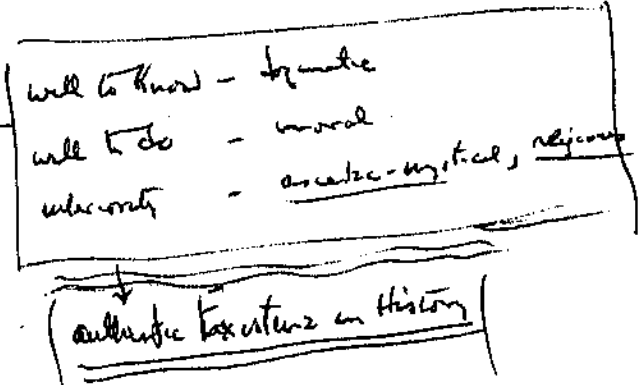 will to know - dogmatic
will to do - moral
interiority - ascetic-mystical, religious
authentic Existenz in History